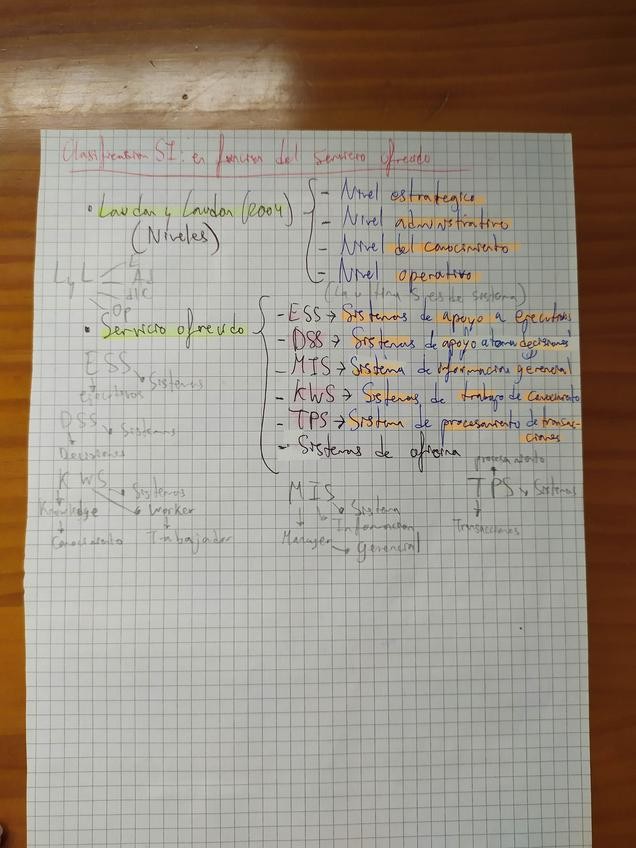 Clasificación SI: en función del servicio ofrecido
· Laudon y Laudon (2004)
(Niveles)
- Nivel estratégico
- Nivel administrativo
- Nivel del conocimiento
- Nivel operativo
(La última S es de sistema)
L y L
E
Ad
d/c
Op
· Servicio ofrecido
- ESS → Sistemas de apoyo a ejecutivos
- DSS → Sistemas de apoyo a toma decisiones
- MIS → Sistema de información gerencial
- KWS → Sistemas de trabajo de conocimiento
- TPS → Sistema de procesamiento de transac-
ciones
- Sistemas de oficina
ESS
Sistemas
ejecutivos
DSS
Sistemas
Decisiones
KWS
Sistemas
Worker
Trabajador
Knowledge
Conocimiento
MIS
Sistema
Información
Manager
Gerencial
procesamiento
TPS
Sistemas
Transacciones